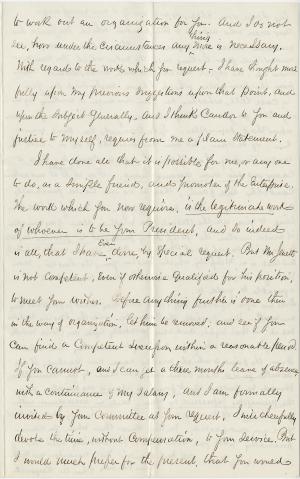 to work out an organization for you. And I do not
see, how under the circumstances any thing more is necessary.
With regards to the work which you request, I have thought more
fully upon my previous suggestions upon that point, and
upon the subject generally. And I think candor to you and
justice to myself, requires from me a plain statement.
I have done all that it is possible for me, or any one
to do, as a simple friend, and promoter of the Enterprise.
The work which you now require, is the legitimate work
of whoever is to be your President, and so indeed
is all, that I have ever done, by special request. But Mr
is not competent, even if otherwise qualified for his position,
to meet your wishes. Before any thing further is done then
in the way of organization, let him be removed, and see if you
can find a competent person within a reasonable period.
If you cannot, and I can get a three months leave of absence
with a continuance of my salary, and I am formally
invited by your Committee at your request, I will cheerfully
devote the time, without compensation, to your service. But
I would much prefer for the present, that you would